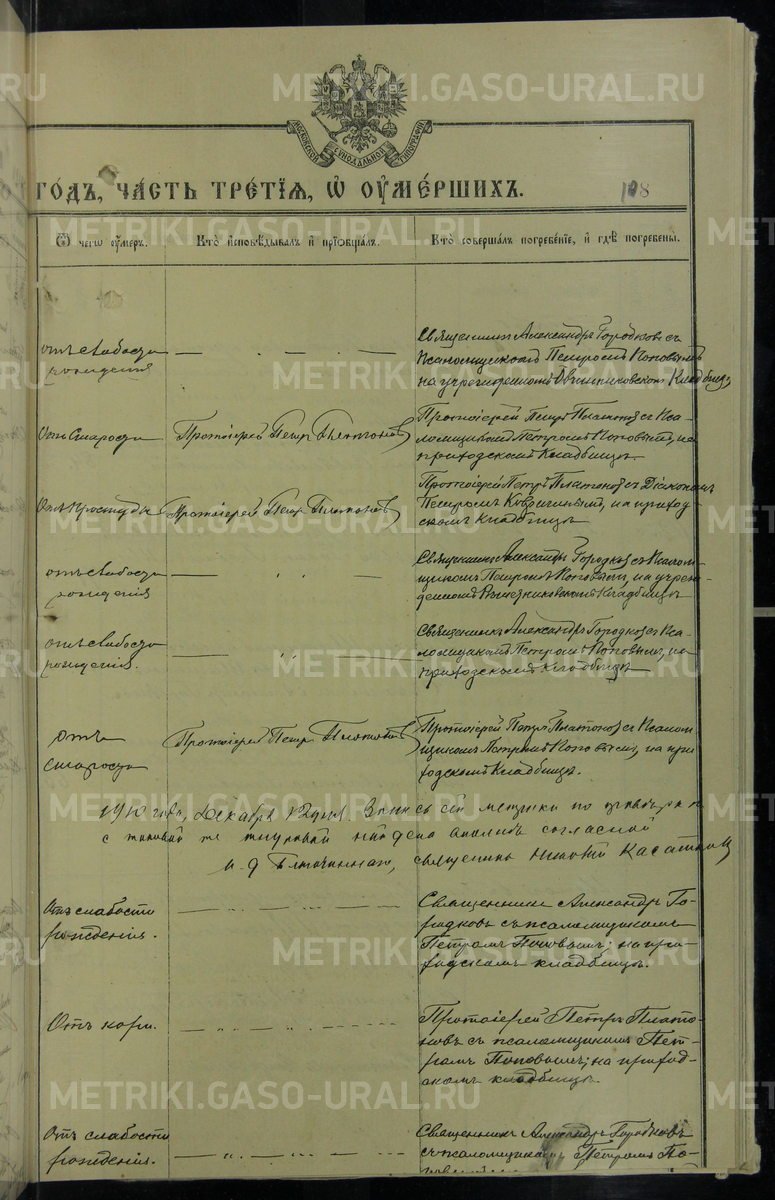 МОСКОВСКОЙ СѴНОДАЛЬНОЙ ТИПОГРАФІИ
ГО́ДЪ, ЧА́СТЬ ТРЕ́ТІѦ, Ѡ҆ ОУ҆МЕ́РШИХЪ. 108
Ѿ чегѡ̀ ᲂу҆́меръ. Кто̀ и҆сповѣ́дывалъ и҆ прїѡбща́лъ. Кто̀ соверша́лъ погребе́нїе, и҆ гдѣ̀ погребены̀.
отъ слабости
рожденія
Священникъ Александръ Городковъ съ
Псаломщикомъ Петромъ Поповымъ
на учрежденномъ кладбищѣ
Отъ Старости
Протоіерей Петръ Платоновъ
Протоіерей Петръ Платоновъ съ Пса-
ломщикомъ Петромъ Поповымъ, на
приходскомъ кладбищѣ.
Отъ Простуды
Протоіерей Петръ Платоновъ
Протоіерей Петръ Платоновъ съ Діакономъ
Петромъ на приход-
скомъ кладбищѣ
отъ слабости
рожденія
Священникъ Александръ Городковъ съ Псалом-
щикомъ Петромъ Поповымъ, на учреж-
денномъ кладбищѣ
отъ слабости
рожденія.
Священникъ Александръ Городковъ съ Пса-
ломщикомъ Петромъ Поповымъ, на
приходскомъ кладбищѣ
отъ
старости
Протоіерей Петръ Платоновъ
Протоіерей Петръ Платоновъ съ Псалом-
щикомъ Петромъ Поповымъ, на при-
ходскомъ кладбищѣ.
1910 года, Декабря 12 дня. Запись сей метрики по
съ таковой же найдена согласной
и. д. Благочиннаго, священникъ Касаткинъ
Отъ слабости
рожденія.
Священникъ Александръ Го-
родковъ съ псаломщикомъ
Петромъ Поповымъ; на при-
ходскомъ кладбищѣ.
Отъ кори.
Протоіерей Петръ Плато-
новъ съ псаломщикомъ Пет-
ромъ Поповымъ; на приход-
скомъ кладбищѣ.
Отъ слабости
рожденія.
Священникъ Александръ Городковъ
съ псаломщикомъ Петромъ По-
METRIKI.GASO-URAL.RU